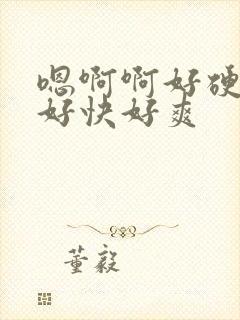 嗯啊啊好硬
好快好爽
董毅